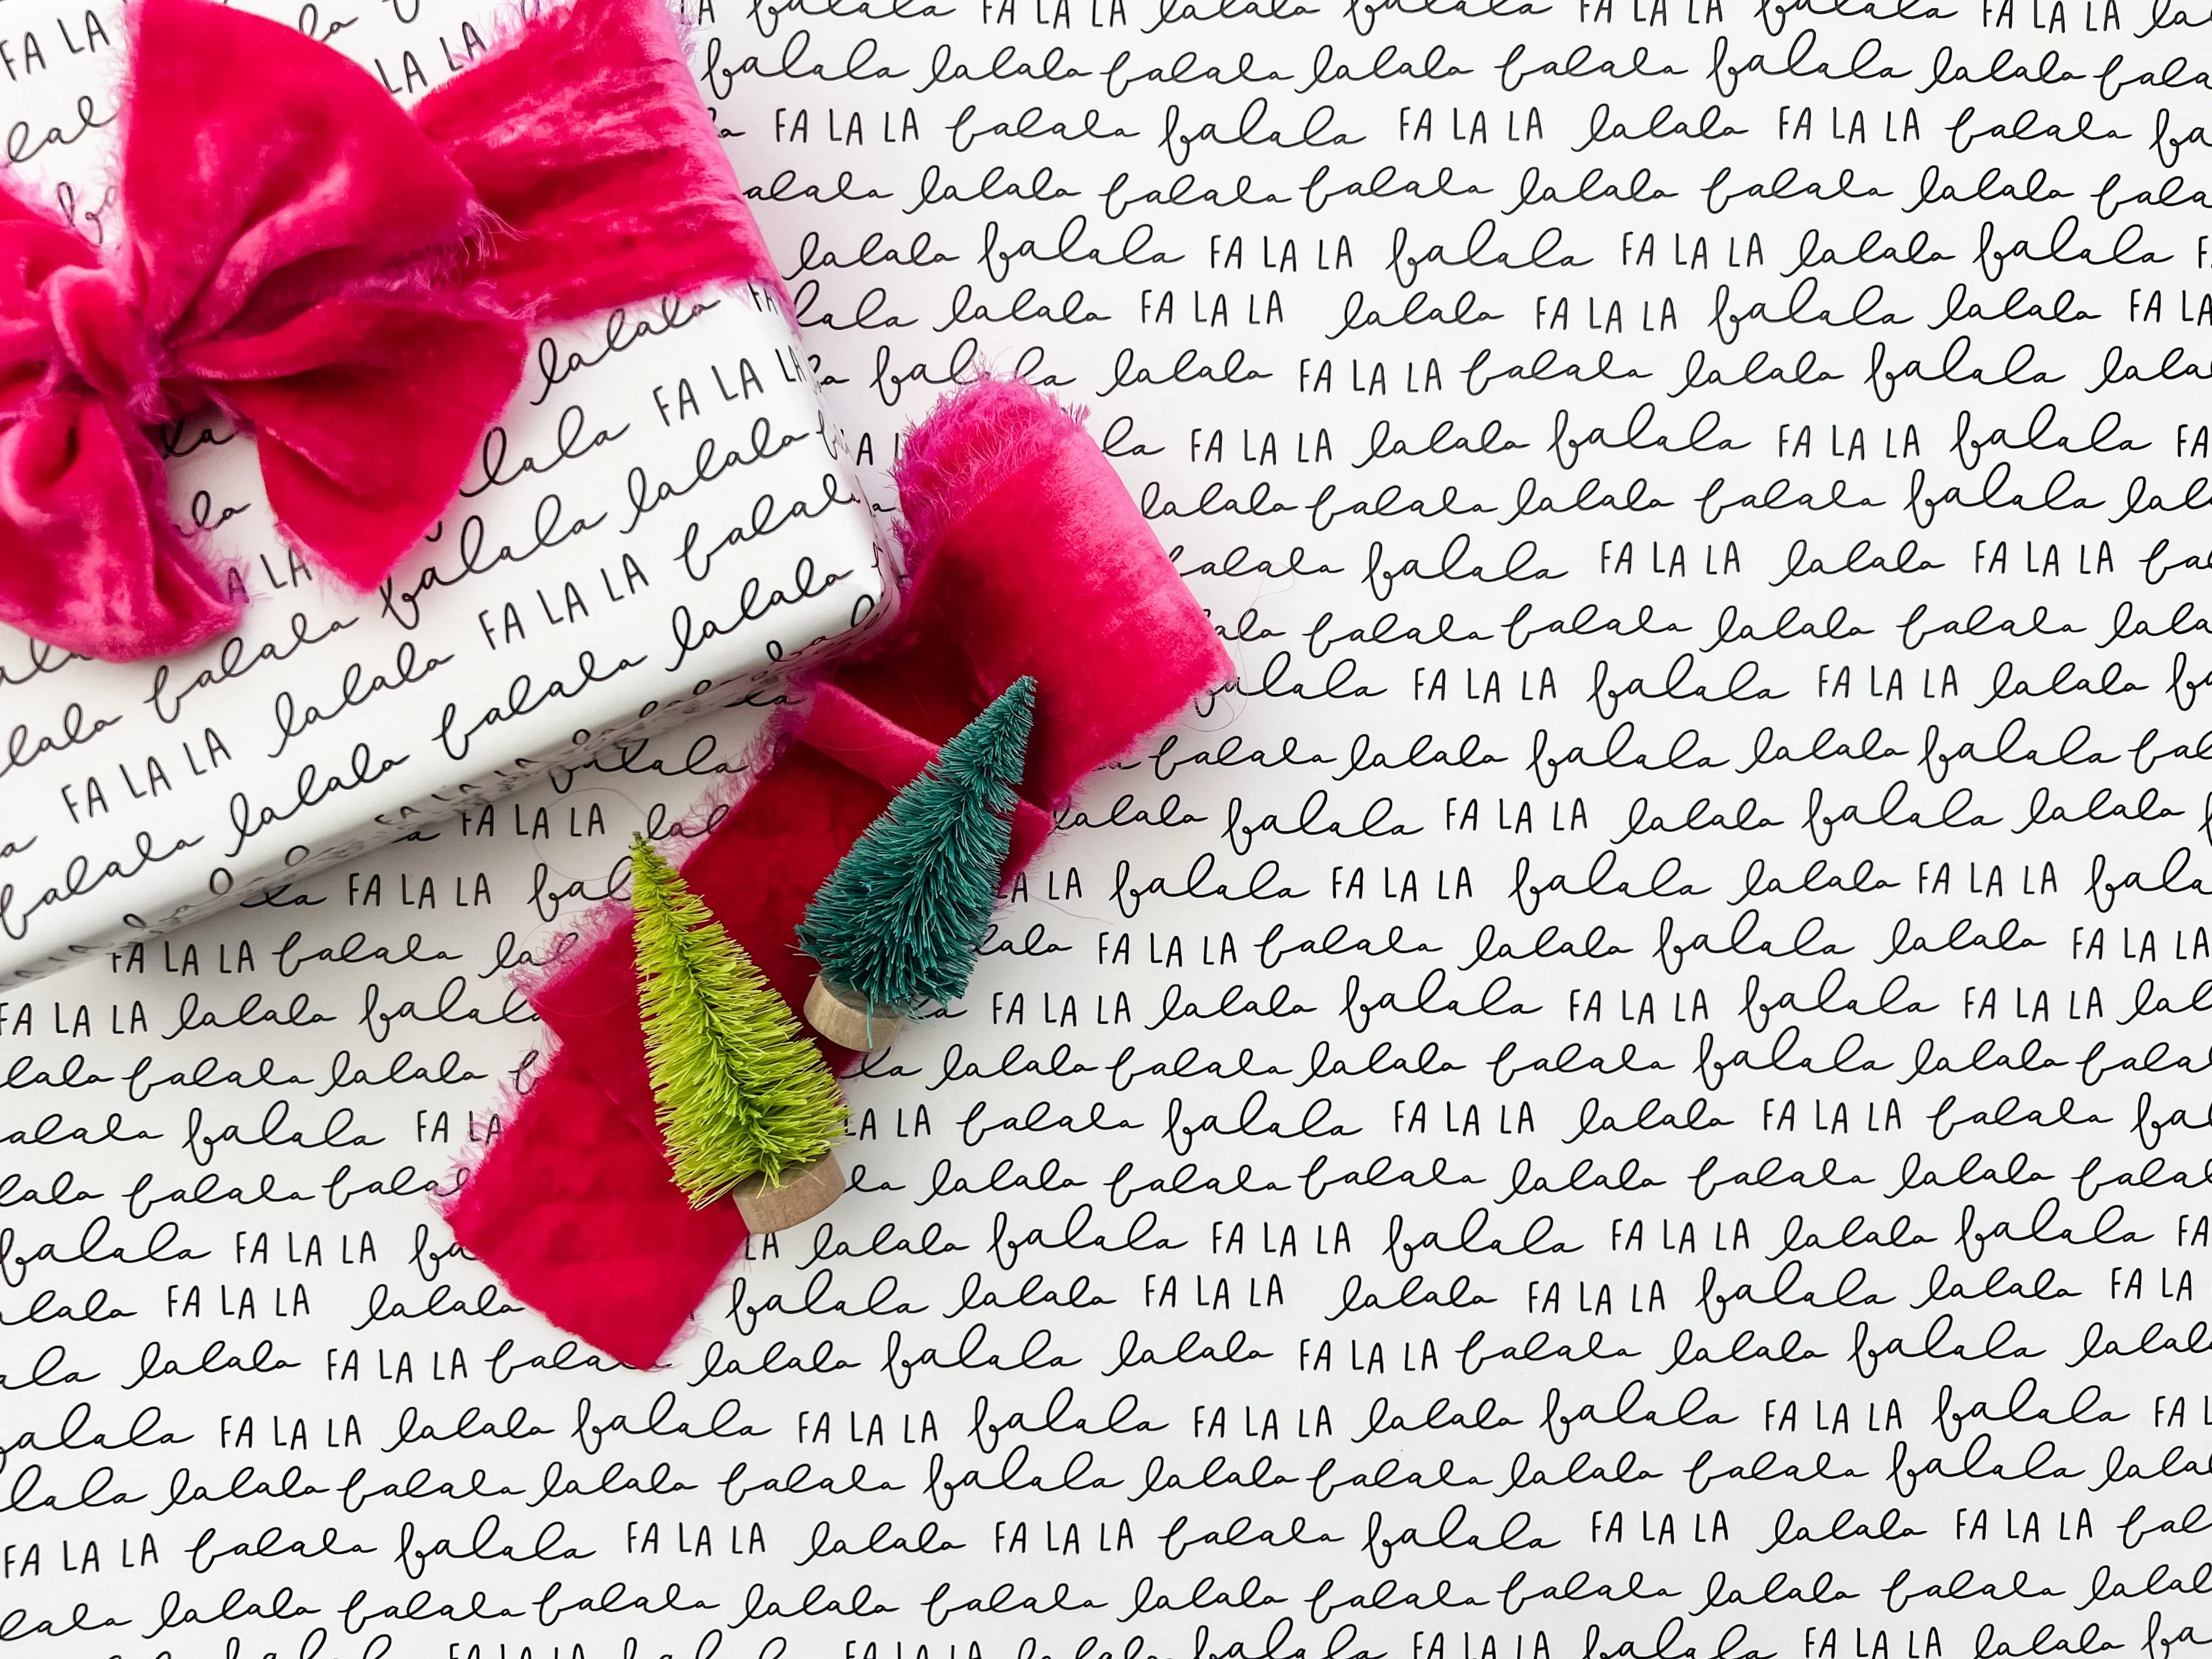 FA LA
LA LA
lalala FA
lalala FA LA LA
falala lalala
falala FA LA LA falala
falala lalala FA LA LA falala lalala
FA LA LA lalala falala lalala
falala lalala
falala FA LA LA lalala falala FA LA LA falala FA LA LA la
falala lalala falala lalala falala falala lalala fala
FA LA LA falala falala FA LA LA lalala FA LA LA falala fa
alala lalala falala falala lalala falala lalala fala
lalala falala FA LA LA falala FA LA LA lalala falala F
lala lalala FA LA LA lalala FA LA LA falala lalala FA LA
falala lalala FA LA LA falala lalala falala lala
la FA LA LA lalala falala FA LA LA falala FA
lalala falala lalala falala falala lal
falala falala FA LA LA lalala FA LA LA fa
ala falala falala lalala falala lala
falala FA LA LA falala FA LA LA lalala fa
falala lalala falala lalala falala fal
FA LA LA lal lalala falala FA LA LA lalala falala lalala
la FA LA LA fal LA LA falala FA LA LA falala lalala FA LA LA fala
FA LA LA falala lal lala FA LA LA falala lalala falala lalala FA LA LA
FA LA LA lalala falal FA LA LA lalala falala FA LA LA falala FA LA LA lal
lala falala lalala la lalala falala lalala falala falala lalala fala
alala falala FA LA LA LA falala falala FA LA LA lalala FA LA LA falala fa
lala falala fala la lalala falala falala lalala falala lalala fala
falala FA LA LA fa LA lalala falala FA LA LA falala FA LA LA lalala falala FA
lala FA LA LA lalala falala lalala FA LA LA lalala FA LA LA falala lalala FA LA
ala lalala FA LA LA falala lalala falala lalala FA LA LA falala lalala falala lala
falala FA LA LA lalala falala FA LA LA falala FA LA LA lalala falala FA LA LA falala FA L
lala lalala falala lalala falala falala lalala falala lalala falala falala lala
FA LA LA falala falala FA LA LA lalala FA LA LA falala falala FA LA LA lalala FA LA LA fal
lala lalala falala falala lalala falala lalala falala falala lalala falala lala
FA LA LA FA LA LA lalala falala FA LA LA falala FA LA LA lalala fa